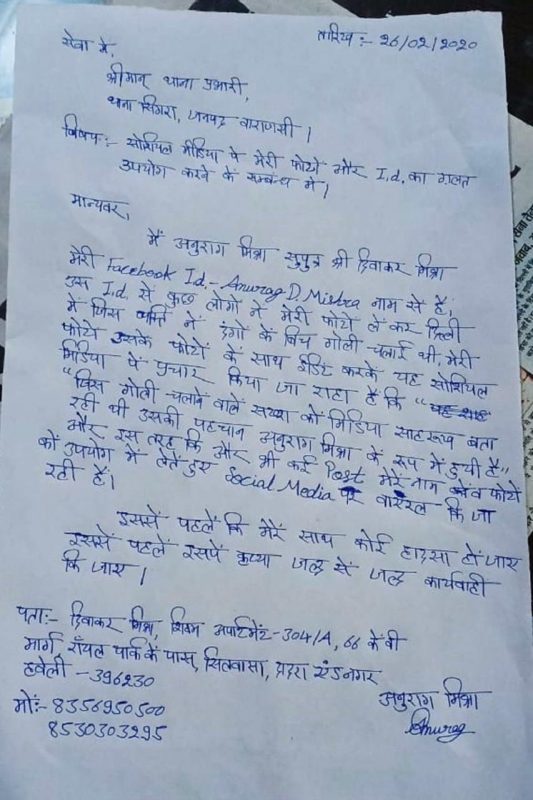 तारिख :- 26/02/2020
सेवा में,
श्रीमान् थाना प्रभारी,
थाना सिगरा, जनपद वाराणसी।
विषय:- सोशियल मीडिया पे मेरी फोटो और I.d. का गलत
उपयोग करने के सम्बन्ध में।
मान्यवर,
मैं अनुराग मिश्रा सुपुत्र श्री दिवाकर मिश्रा
मेरी Facebook Id.- Anurag D. Mishra नाम से हैं,
उस I.d. से कुछ लोगों ने मेरी फोटो ले कर दिल्ली
में जिस व्यक्ति ने दंगों के बिच गोली चलाई थी, मेरी
फोटो उसके फोटो के साथ इडिट करके यह सोशियल
मिडिया पे प्रचार किया जा राहा है कि "
"जिस गोली चलाने वाले सख्श को मिडिया साहरूख बता
रही थी उसकी पहचान अनुराग मिश्रा के रूप में हुयी है"
और इस तरह कि और भी कई Post मेरे नाम एंव फोटो
को उपयोग में लेते हुए Social Media पर वायरल कि जा
रही हैं।
इससे पहले कि मेरे साथ कोई हादसा हो जाए
इससे पहले इसपे कृप्या जल्द से जल्द कार्यवाही
कि जाए।
पता:- दिवाकर मिश्रा, शिवम अपार्टमेंट-304/A, 66 के वी
मार्ग, रॉयल पार्क के पास, सिलवासा, दादरा एंड नगर
हवेली - 396230
मो:- 8356950500
8530303295
अनुराग मिश्रा
Anurag